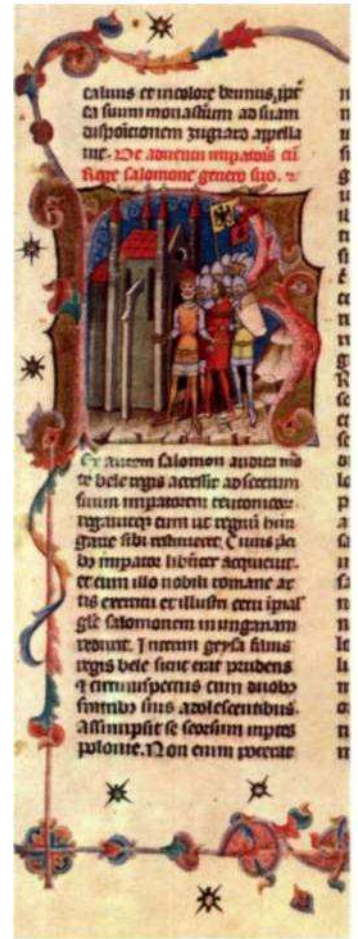 caluus et in colore brunus, ipt
ea suum monasteriũ ad suam
dispositionem zugzard appella
uit. De aduentu impatoris cũ
Rege salomone genero suo.
Ex autem salomon audita mo
te bele regis accessit ad socerum
suum impatorem teutonicor.
rogauitqz eum ut regnũ hun
garie sibi restitueret. Cuius pci
bz impator libenter acquieuit.
et cum illo nobili romane ar
tis exercitu et illustri cetu ipial
glẽ salomonem in ungariam
reduxit. Interim geysa filius
regis bele sicut erat prudens
et circumspectus cum duobz
fratribz suis adolescentibus.
Assumpsit se seorsum inptes
polonie. Non enim poterat